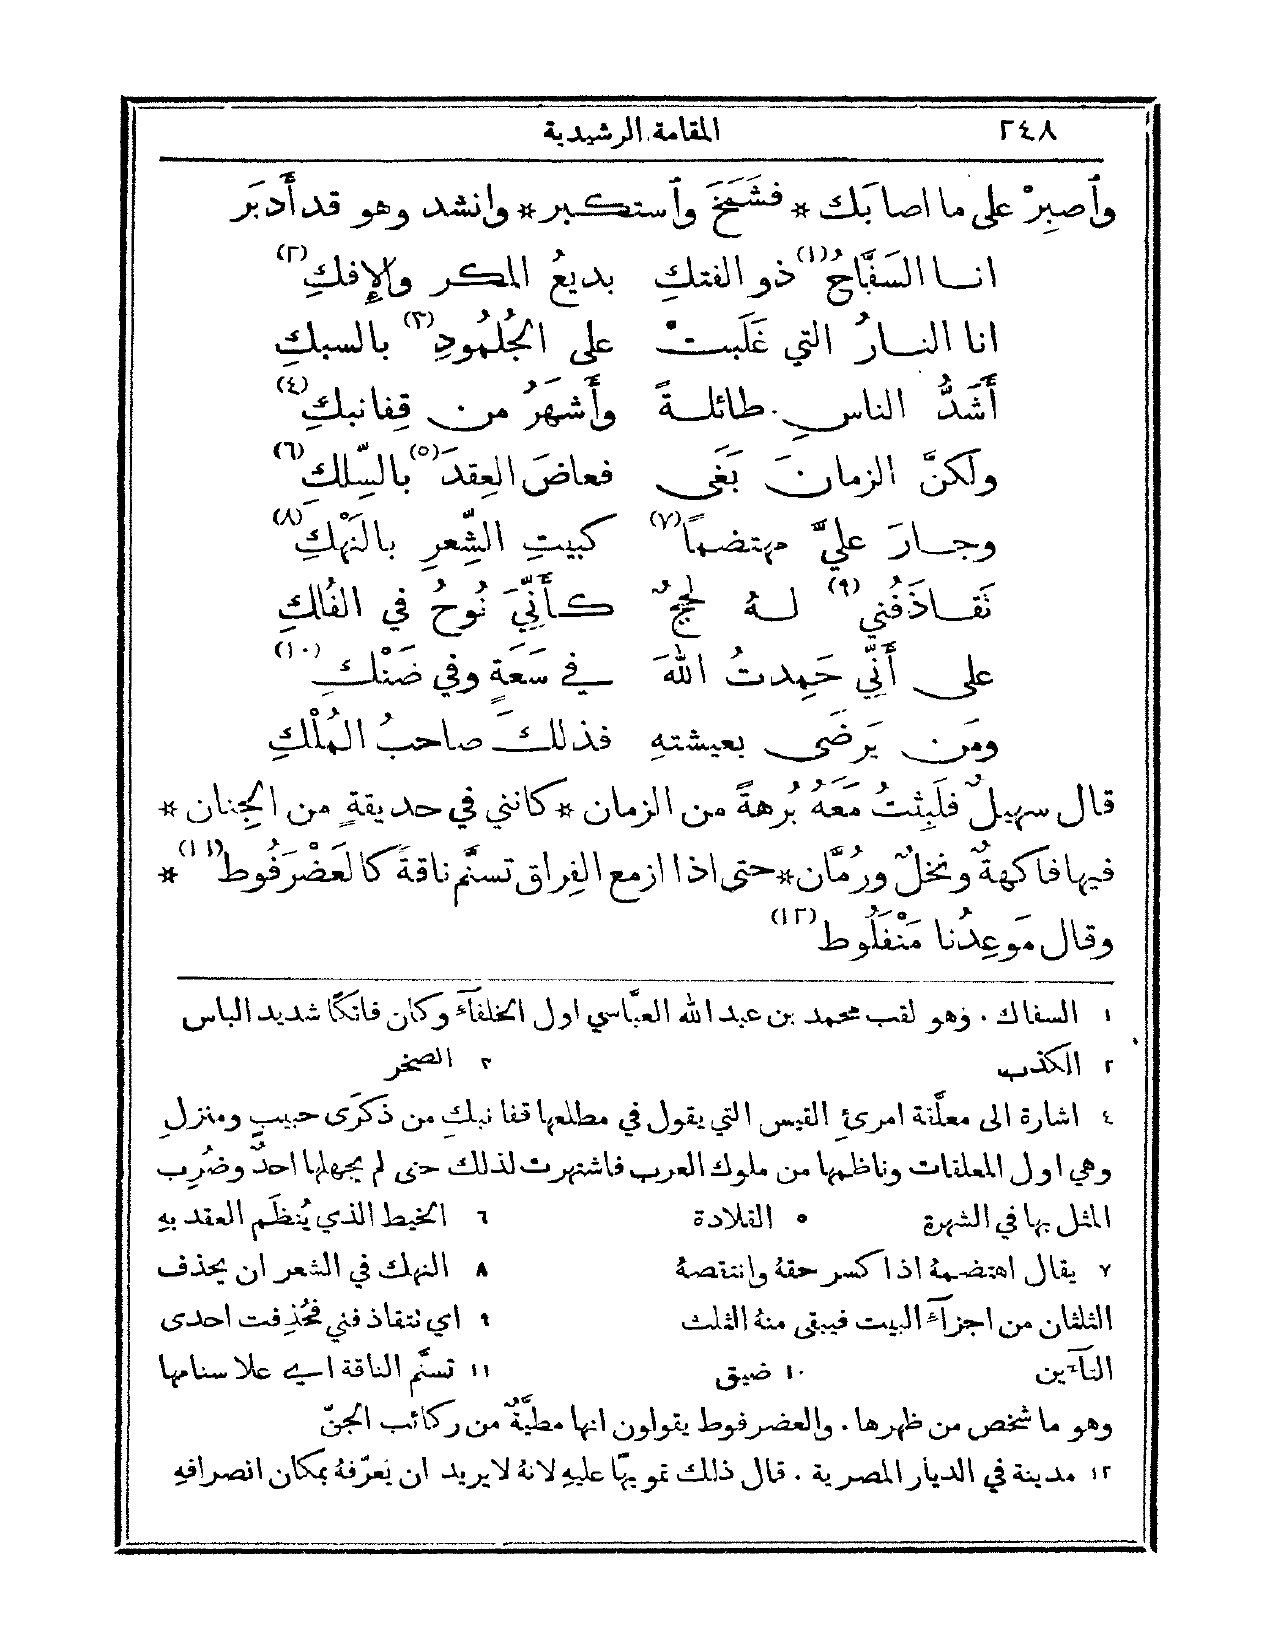 ٢٤٨ المقامة الرشيدية
وٱصبِرْ على ما اصابَك * فشَمَخَ وٱستكبر * وانشد وهو قد أَدبَر
انا السَفَّاحُ (١) ذو الفتكِ بديعُ المكر والإِفكِ (٢)
انا النارُ التي غَلَبتْ على الجُلمُودِ (٣) بالسبكِ
أَشَدُّ الناسِ طائلةً وأَشهَرُ من قِفا نبكِ (٤)
ولكنَّ الزمانَ بَغَى فعاضَ العِقدَ (٥) بالسِّلكِ (٦)
وجارَ عليَّ مهتضمًا (٧) كبيتِ الشِّعرِ بالنَهْكِ (٨)
تَقاذَفُني (٩) لهُ لججٌ كأَنِّيَ نُوحُ في الفُلكِ
على أَنِّي حَمِدتُ اللهَ في سَعَةٍ وفي ضَنْكِ (١٠)
ومَن يَرضَى بعيشتهِ فذلكَ صاحبُ المُلْكِ
قال سهيلٌ فلَبِثتُ مَعَهُ بُرهةً من الزمان * كانني في حديقةٍ من الجِنان *
فيها فاكهةٌ ونخلٌ ورُمَّان * حتى اذا ازمع الفِراق تسنَّم ناقةً كالعَضْرَفُوط (١١) *
وقال مَوعِدُنا مَنْفَلُوط (١٢)
١ السفاك . وهو لقب محمد بن عبد الله العبَّاسي اول الخلفآء وكان فاتكًا شديد الباس
٢ الكذب ٣ الصخر
٤ اشارة الى معلَّقة امرئِ القيس التي يقول في مطلعها قفا نبكِ من ذكرَى حبيبٍ ومنزلِ
وهي اول المعلقات وناظمها من ملوك العرب فاشتهرت لذلك حتى لم يجهلها احدٌ وضُرِب
المثل بها في الشهرة ٥ القلادة ٦ الخيط الذي يُنظَم العقد بهِ
٧ يقال اهتضمهُ اذا كسر حقهُ وانتقصهُ ٨ النهك في الشعر ان يحذف
الثلثان من اجزآء البيت فيبقى منهُ الثلث ٩ اي تتقاذفني فحُذِفت احدى
التآءين ١٠ ضيق ١١ تسنَّم الناقة اي علا سنامها
وهو ما شخص من ظهرها . والعضرفوط يقولون انها مطيَّةٌ من ركائب الجنّ
١٢ مدينة في الديار المصرية . قال ذلك تمويهًا عليهِ لانهُ لا يريد ان يعرّفهُ بمكان انصرافهِ